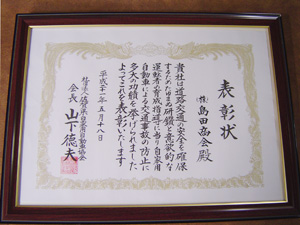 表彰状
(株)島田商会殿
貴社は道路交通の安全を確保
するためたゆまぬ研鑽と意欲的な
運転者の育成指導に当り自家用
自動車による交通事故の防止に
多大の功績を挙げられました
よってこれを表彰いたします
平成二十一年五月十八日
会長 山下徳夫